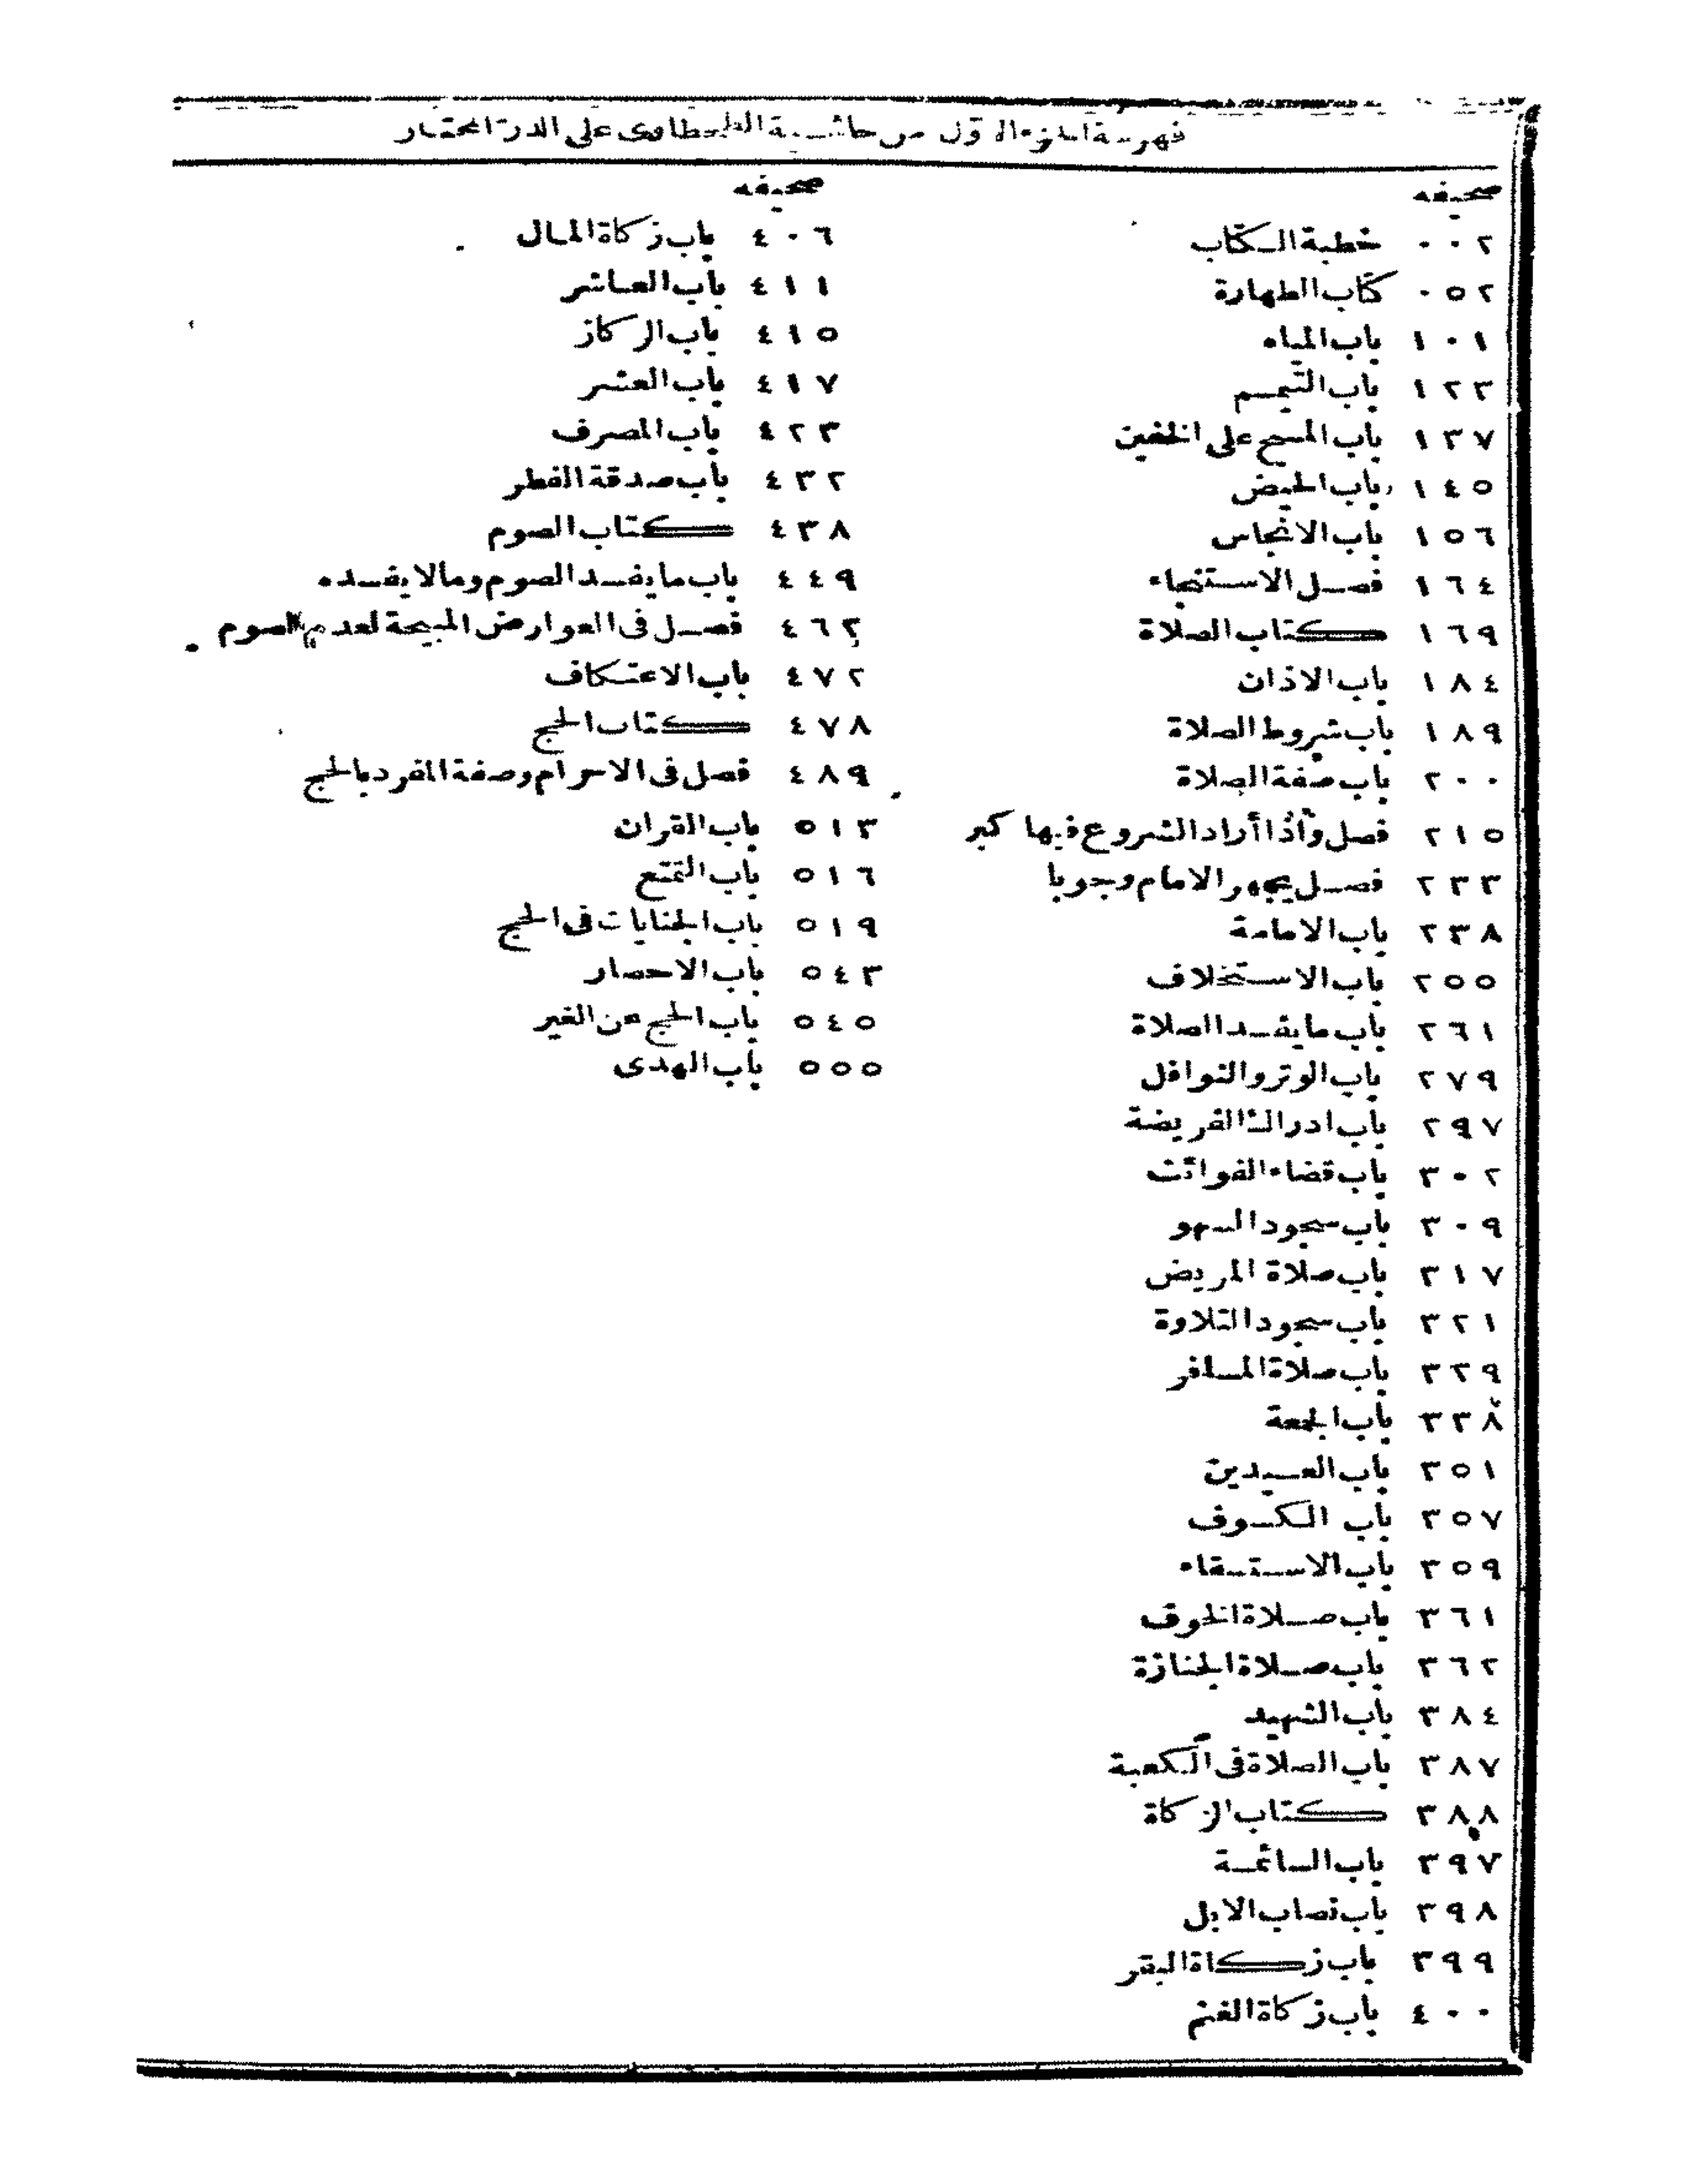 فهرسة الجزء الاول من حاشية الطحطاوى على الدر المختار
صحيفه
٠٠٢ خطبة الكتاب
٠٥٢ كتاب الطهارة
١٠١ باب المياه
١٢٣ باب التيمم
١٣٧ باب المسح على الخفين
١٤٥ باب الحيض
١٥٦ باب الانجاس
١٦٤ فصل الاستنجاء
١٦٩ كتاب الصلاة
١٨٤ باب الاذان
١٨٩ باب شروط الصلاة
٢٠٠ باب صفة الصلاة
٢١٥ فصل واذا أراد الشروع فيها كبر
٢٣٣ فصل يجهر الامام وجوبا
٢٣٨ باب الامامة
٢٥٥ باب الاستخلاف
٢٦١ باب ما يفسد الصلاة
٢٧٩ باب الوتر والنوافل
٢٩٧ باب ادراك الفريضة
٣٠٢ باب قضاء الفوائت
٣٠٩ باب سجود السهو
٣١٧ باب صلاة المريض
٣٢١ باب سجود التلاوة
٣٢٩ باب صلاة المسافر
٣٣٨ باب الجمعة
٣٥١ باب العيدين
٣٥٧ باب الكسوف
٣٥٩ باب الاستسقاء
٣٦١ باب صلاة الخوف
٣٦٢ باب صلاة الجنازة
٣٨٤ باب الشهيد
٣٨٧ باب الصلاة فى الكعبة
٣٨٨ كتاب الزكاة
٣٩٧ باب السائمة
٣٩٨ باب نصاب الابل
٣٩٩ باب زكاة البقر
٤٠٠ باب زكاة الغنم
صحيفه
٤٠٦ باب زكاة المال
٤١١ باب العاشر
٤١٥ باب الركاز
٤١٧ باب العشر
٤٢٣ باب المصرف
٤٣٢ باب صدقة الفطر
٤٣٨ كتاب الصوم
٤٤٩ باب ما يفسد الصوم وما لا يفسده
٤٦٢ فصل فى العوارض المبيحة لعدم الصوم
٤٧٢ باب الاعتكاف
٤٧٨ كتاب الحج
٤٨٩ فصل فى الاحرام وصفة المفرد بالحج
٥١٣ باب القران
٥١٦ باب التمتع
٥١٩ باب الجنايات فى الحج
٥٤٣ باب الاحصار
٥٤٥ باب الحج عن الغير
٥٥٥ باب الهدى